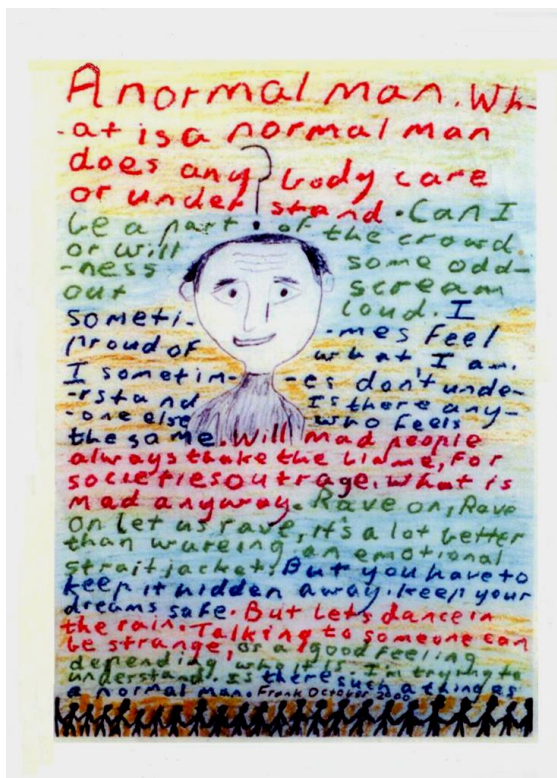 A normal man. Wh-
-at is a normal man
does any? body care
or under stand. Can I
be a part of the crowd
or will some odd-
-ness scream
out loud. I
someti- -mes feel
proud of what I am.
I sometim- -es don't unde-
-rstand Is there any-
-one else who feels
the same. Will mad people
always thake the blame, For
societies outrage. What is
mad anyway. Rave on, Rave
on let us rave, it's a lot better
than wureing an emotional
strait jacket. But you have to
keep it hidden away. keep your
dreams safe. But lets dance in
the rain. Talking to someone can
be strange, or a good feeling
depending who it is. I'm trying to
understand. Is there such a thing as
a normal man. Frank October 2000